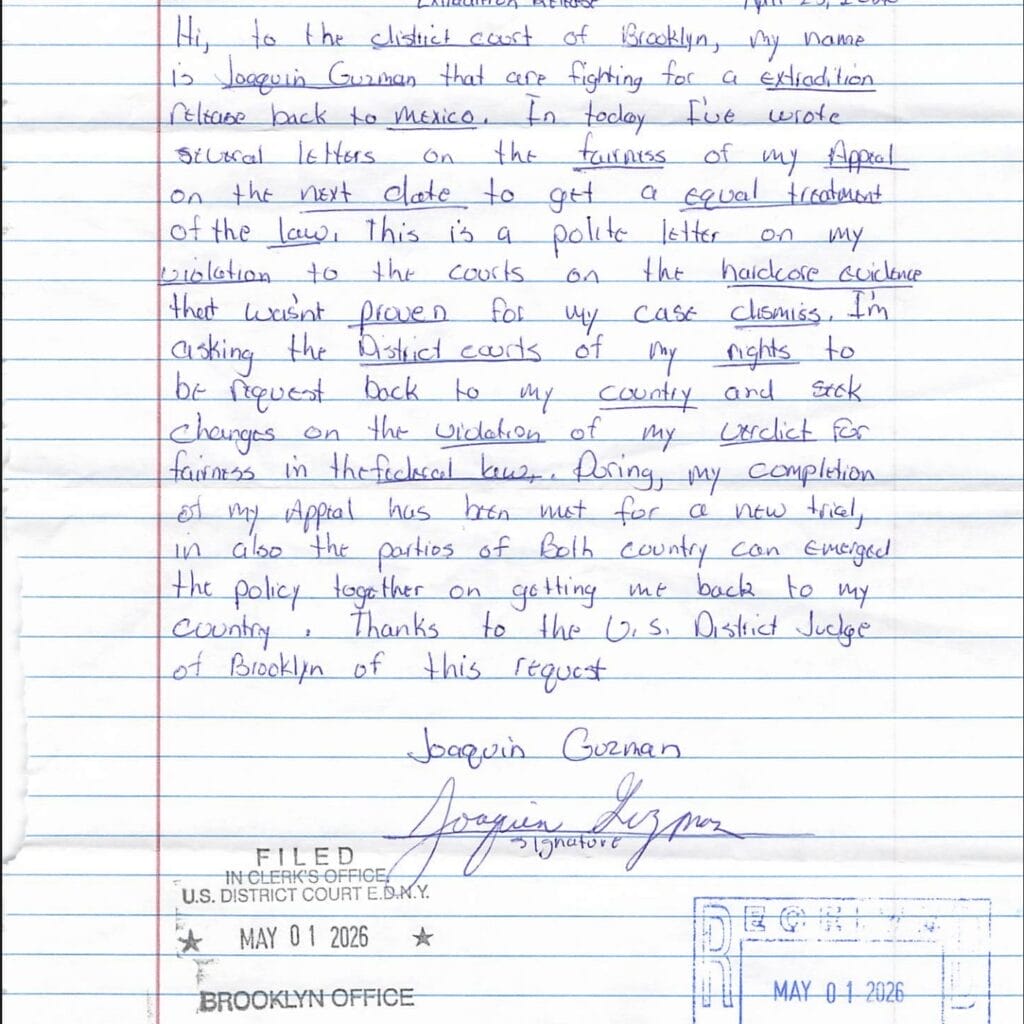 Extradition Release April 23, 2026
Hi, to the district court of Brooklyn, my name
is Joaquin Guzman that are fighting for a extradition
release back to Mexico. In today I've wrote
several letters on the fairness of my Appeal
on the next date to get a equal treatment
of the law. This is a polite letter on my
violation to the courts on the hardcore evidence
that wasn't proven for my case dismiss. I'm
asking the District courts of my rights to
be request back to my country and seek
changes on the violation of my verdict for
fairness in the federal law,. Doring, my completion
of my Appeal has been met for a new trial,
in also the parties of Both country can emerged
the policy together on getting me back to my
country. Thanks to the U.S. District Judge
of Brooklyn of this request
Joaquin Guzman
Joaquin Guzman
signature
FILED
IN CLERK'S OFFICE
U.S. DISTRICT COURT E.D.N.Y.
★ MAY 01 2026 ★
BROOKLYN OFFICE
RECEIVED
MAY 01 2026